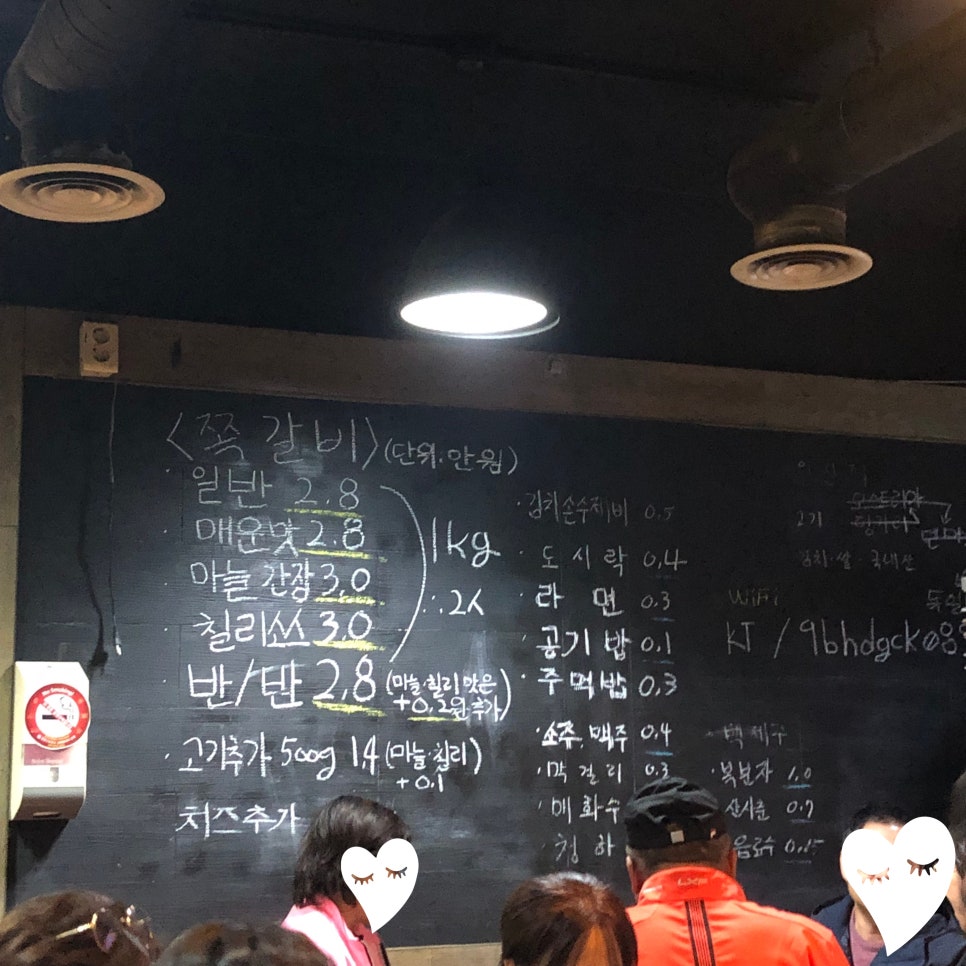 <쪽갈비> (단위.만원)
· 일반 2.8
· 매운맛 2.8
· 마늘간장 3.0
· 칠리쏘스 3.0
· 반/반 2.8 (마늘·칠리 맛은
+0.2원 추가)
1kg
∴ 2人
· 고기추가 500g 1.4 (마늘·칠리)
+0.1
치즈추가
· 김치손수제비 0.5
· 도시락 0.4
· 라면 0.3
· 공기밥 0.1
· 주먹밥 0.3
· 소주.맥주 0.4
· 막걸리 0.3
· 매화수
· 청하
· 복분자 1.0
산사춘 0.7
음료수
김치·쌀·국내산
WiFi
KT / 9bhdgck08
No Smoking!